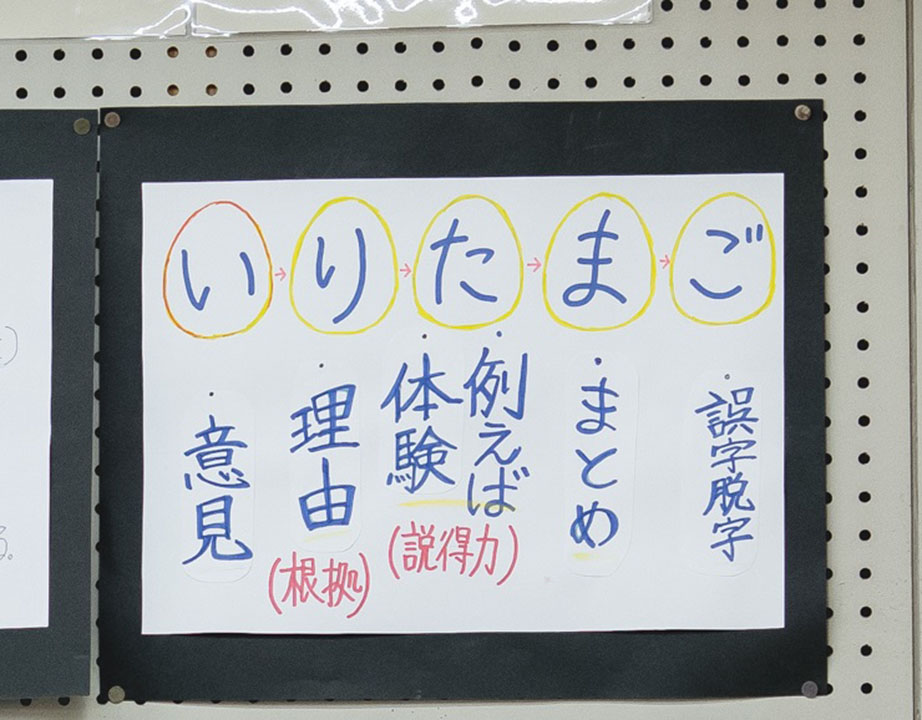 い→り→た→ま→ご
・意見
・理由
(根拠)
・例えば
・体験
(説得力)
・まとめ
・誤字脱字
る。